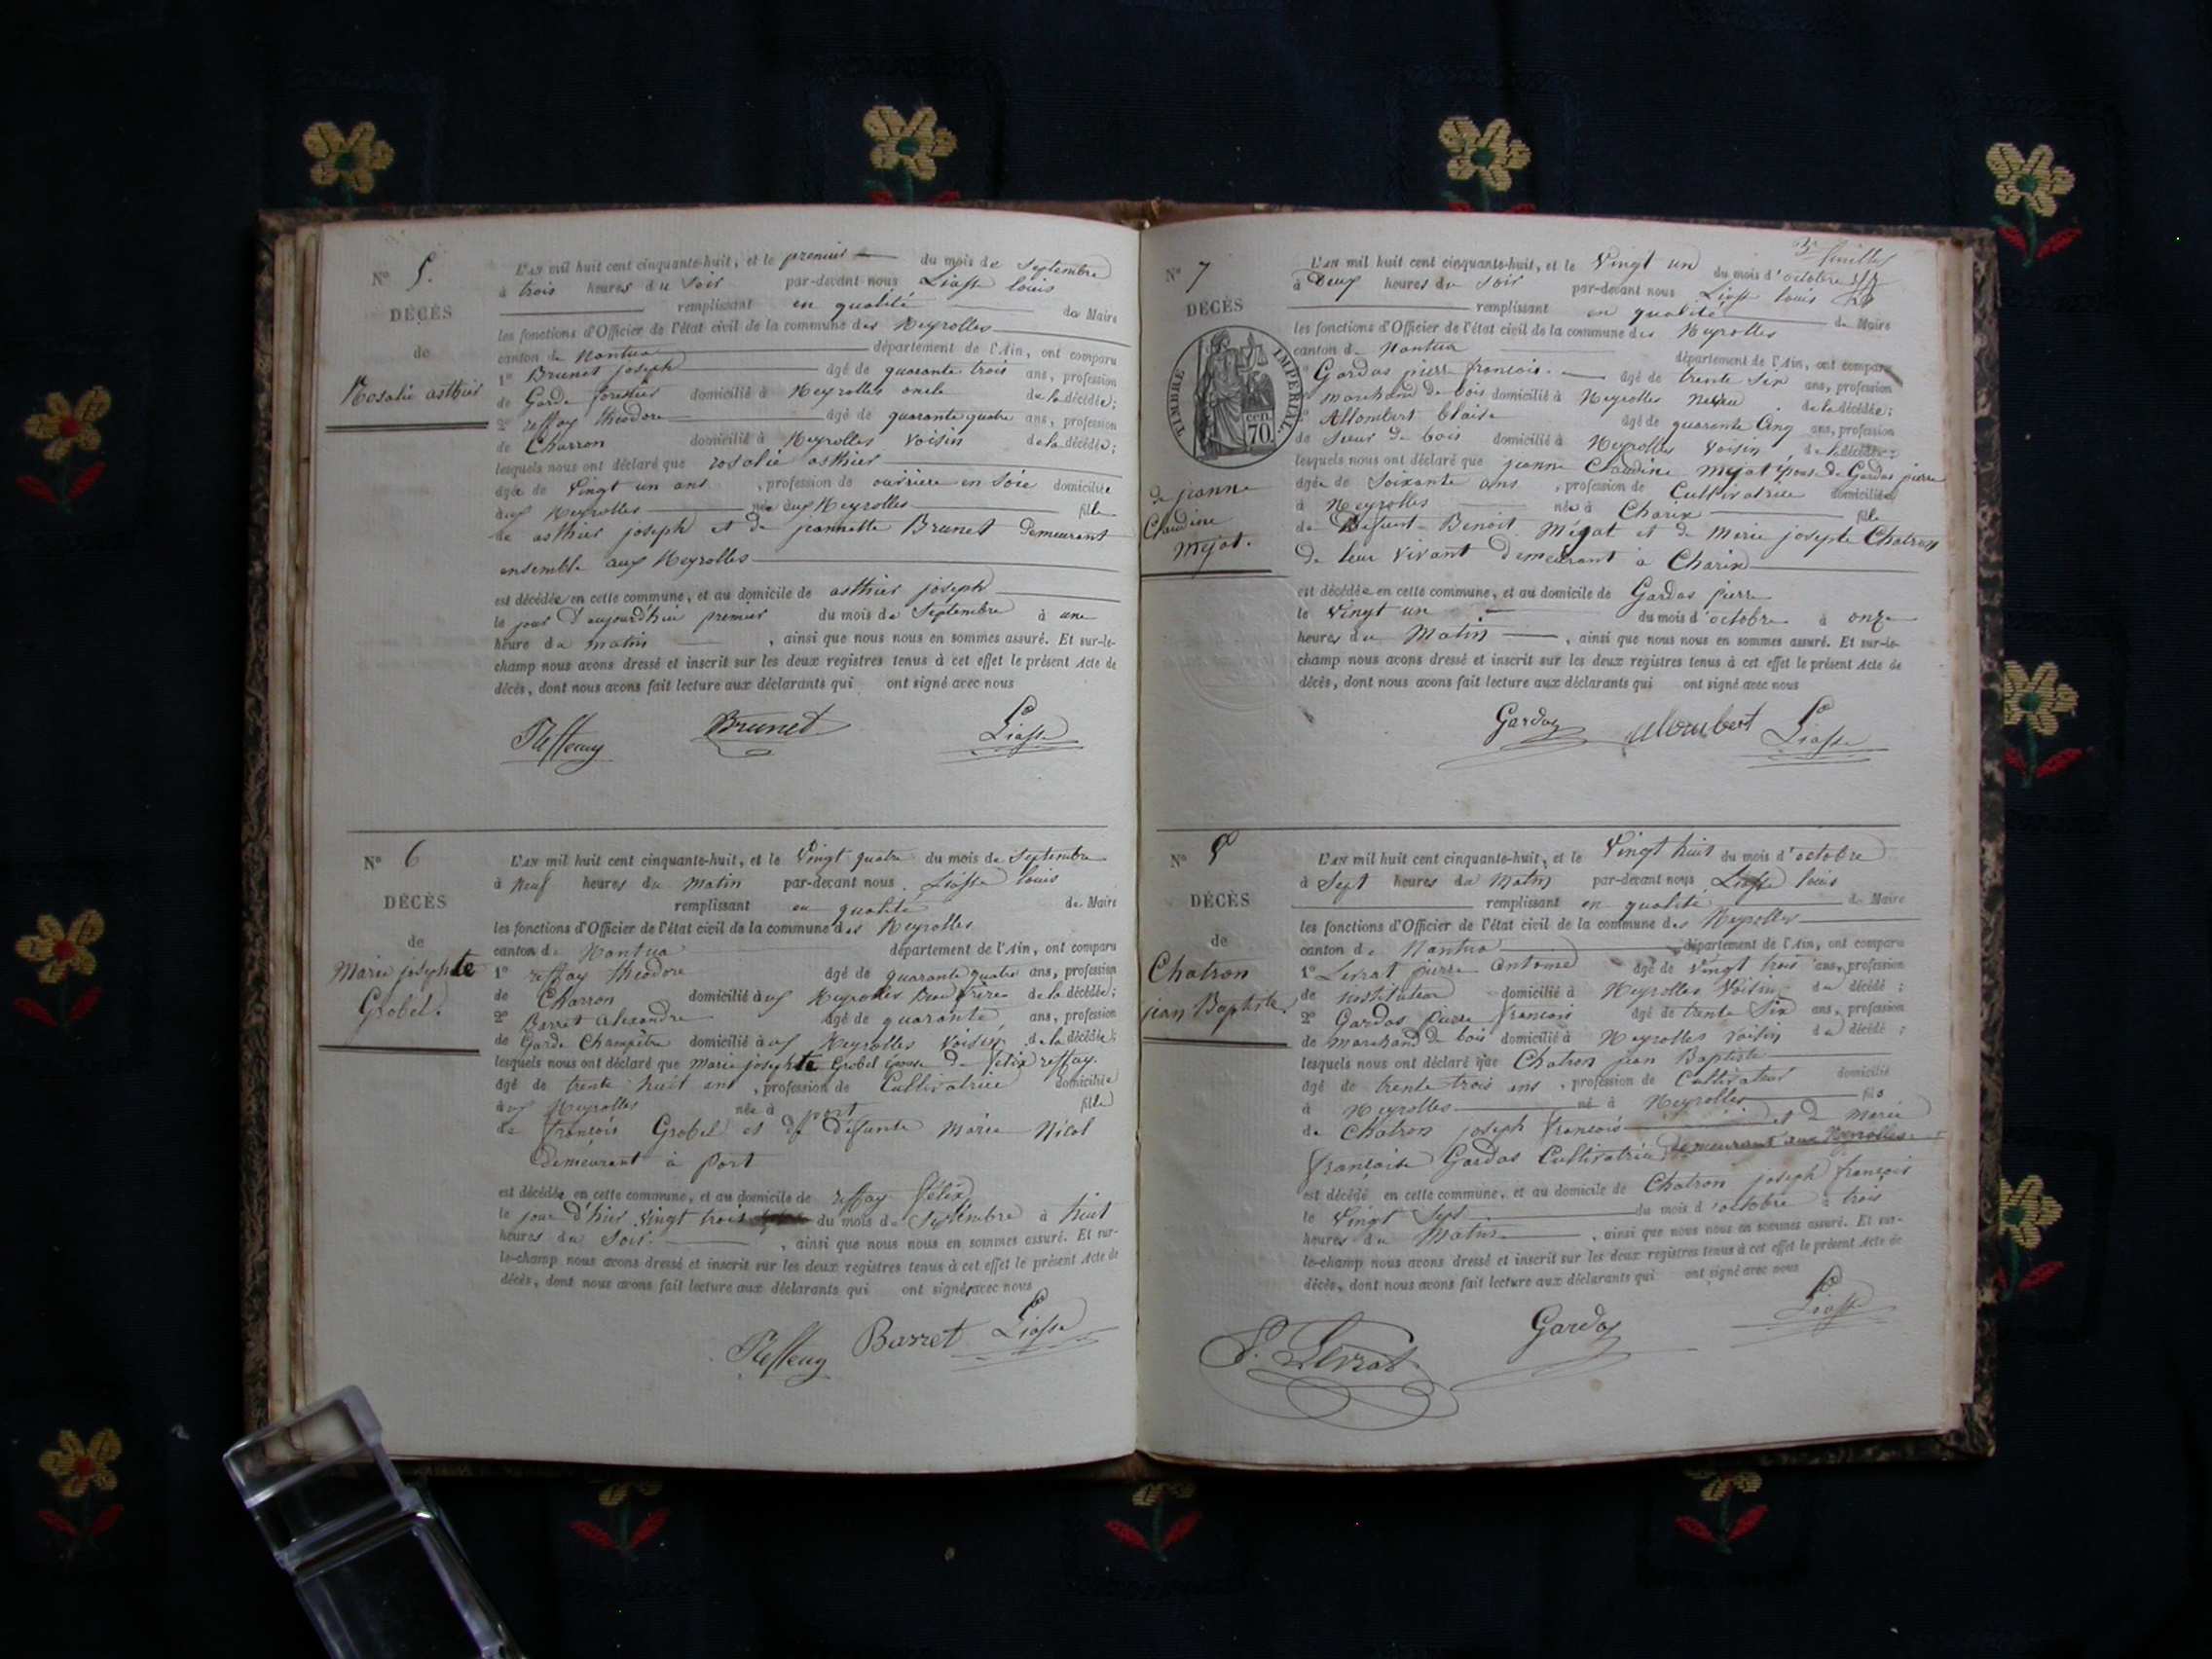 N° 5.
DÉCÈS
de
Rosalie asthier
L'AN mil huit cent cinquante-huit, et le premier du mois de Septembre
à trois heures du Soir par-devant nous Liasse louis
remplissant en qualité de Maire
les fonctions d'Officier de l'état civil de la commune des Neyrolles
canton de Nantua département de l'Ain, ont comparu
1° Brunet joseph âgé de quarante trois ans, profession
de Garde forestier domicilié à Neyrolles oncle de la décédée;
2° reffay théodore âgé de quarante quatre ans, profession
de Charron domicilié à Neyrolles voisin de la décédée;
lesquels nous ont déclaré que rosalie asthier
âgée de Vingt un ans, profession de ouvrière en Soie domiciliée
aux Neyrolles née aux Neyrolles fille
de asthier joseph et de jeannette Brunet Demeurant
ensemble aux Neyrolles
est décédée en cette commune, et au domicile de asthier joseph
le jour D'aujourd'hui premier du mois de Septembre à une
heure du matin, ainsi que nous nous en sommes assuré. Et sur-le-
champ nous avons dressé et inscrit sur les deux registres tenus à cet effet le présent Acte de
décès, dont nous avons fait lecture aux déclarants qui ont signé avec nous
Reffay Brunet Liasse
N° 6
DÉCÈS
de
Marie josephte
Grobel.
L'AN mil huit cent cinquante-huit, et le Vingt quatre du mois de Septembre
à Neuf heures du Matin par-devant nous Liasse louis
remplissant en qualité de Maire
les fonctions d'Officier de l'état civil de la commune des Neyrolles
canton de Nantua département de l'Ain, ont comparu
1° reffay théodore âgé de quarante quatre ans, profession
de Charron domicilié aux Neyrolles Beau frère de la décédée;
2° Barret Alexandre âgé de quarante ans, profession
de Garde Champêtre domicilié aux Neyrolles Voisin de la décédée;
lesquels nous ont déclaré que Marie josephte Grobel épouse de félix reffay.
âgé de trente huit ans, profession de Cultivatrice domiciliée
aux Neyrolles née à port fille
de françois Grobel et de défunte Marie Nicol
Demeurant à Port
est décédée en cette commune, et au domicile de reffay félix
le jour d'hier vingt trois du mois de Septembre à huit
heures du Soir, ainsi que nous nous en sommes assuré. Et sur-
le-champ nous avons dressé et inscrit sur les deux registres tenus à cet effet le présent Acte de
décès, dont nous avons fait lecture aux déclarants qui ont signé avec nous
Reffay Barret Liasse
3e feuillet
N° 7
DÉCÈS
TIMBRE IMPÉRIAL
cen. 70
de jeanne
Claudine
Mejat.
L'AN mil huit cent cinquante-huit, et le Vingt un du mois d'octobre
à Deux heures du Soir par-devant nous Liasse louis
remplissant en qualité de Maire
les fonctions d'Officier de l'état civil de la commune des Neyrolles
canton de Nantua département de l'Ain, ont comparu
1° Gardas pierre françois âgé de trente Six ans, profession
marchand de bois domicilié à Neyrolles neveu de la décédée;
2° Allombert blaise âgé de quarante Cinq ans, profession
de Sieur de bois domicilié à Neyrolles Voisin de la décédée;
lesquels nous ont déclaré que jeanne Claudine Mejat épouse de Gardas pierre
âgée de Soixante ans, profession de Cultivatrice domiciliée
à Neyrolles née à Charix fille
de Défunt Benoit Mégat et de Marie josephe Chatron
de leur vivant demeurant à Charix
est décédée en cette commune, et au domicile de Gardas pierre
le Vingt un du mois d'octobre à onze
heures du Matin, ainsi que nous nous en sommes assuré. Et sur-le-
champ nous avons dressé et inscrit sur les deux registres tenus à cet effet le présent Acte de
décès, dont nous avons fait lecture aux déclarants qui ont signé avec nous
Gardas Allombert Liasse
N° 8
DÉCÈS
de
Chatron
jean Baptiste.
L'AN mil huit cent cinquante-huit, et le Vingt huit du mois d'octobre
à Sept heures du Matin par-devant nous Liasse louis
remplissant en qualité de Maire
les fonctions d'Officier de l'état civil de la commune des Neyrolles
canton de Nantua département de l'Ain, ont comparu
1° Levrat pierre antoine âgé de Vingt trois ans, profession
de instituteur domicilié à Neyrolles Voisin du décédé;
2° Gardas pierre françois âgé de trente Six ans, profession
de marchand de bois domicilié à Neyrolles voisin du décédé;
lesquels nous ont déclaré que Chatron jean Baptiste
âgé de trente trois ans, profession de Cultivateur domicilié
à Neyrolles né à Neyrolles fils
de Chatron joseph françois et de Marie
françoise Gardas Cultivatrice demeurant aux Neyrolles.
est décédé en cette commune, et au domicile de Chatron joseph françois
le Vingt Sept du mois d'octobre à trois
heures du Matin, ainsi que nous nous en sommes assuré. Et sur-
le-champ nous avons dressé et inscrit sur les deux registres tenus à cet effet le présent Acte de
décès, dont nous avons fait lecture aux déclarants qui ont signé avec nous
Levrat Gardas Liasse